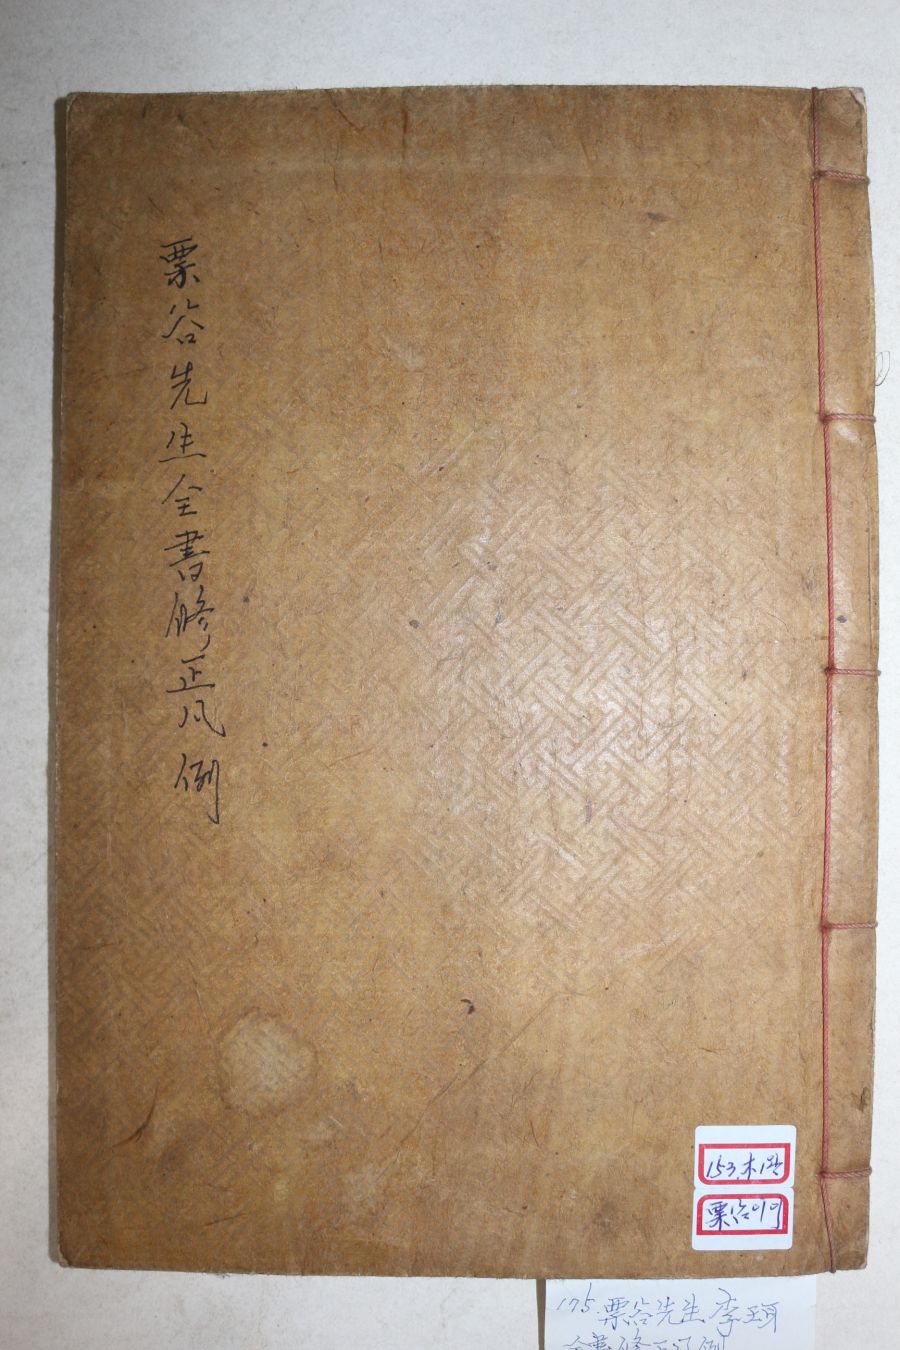 栗谷先生全書修正凡例
153.木1책
栗谷이이
175.栗谷先生李珥
全書修正凡例